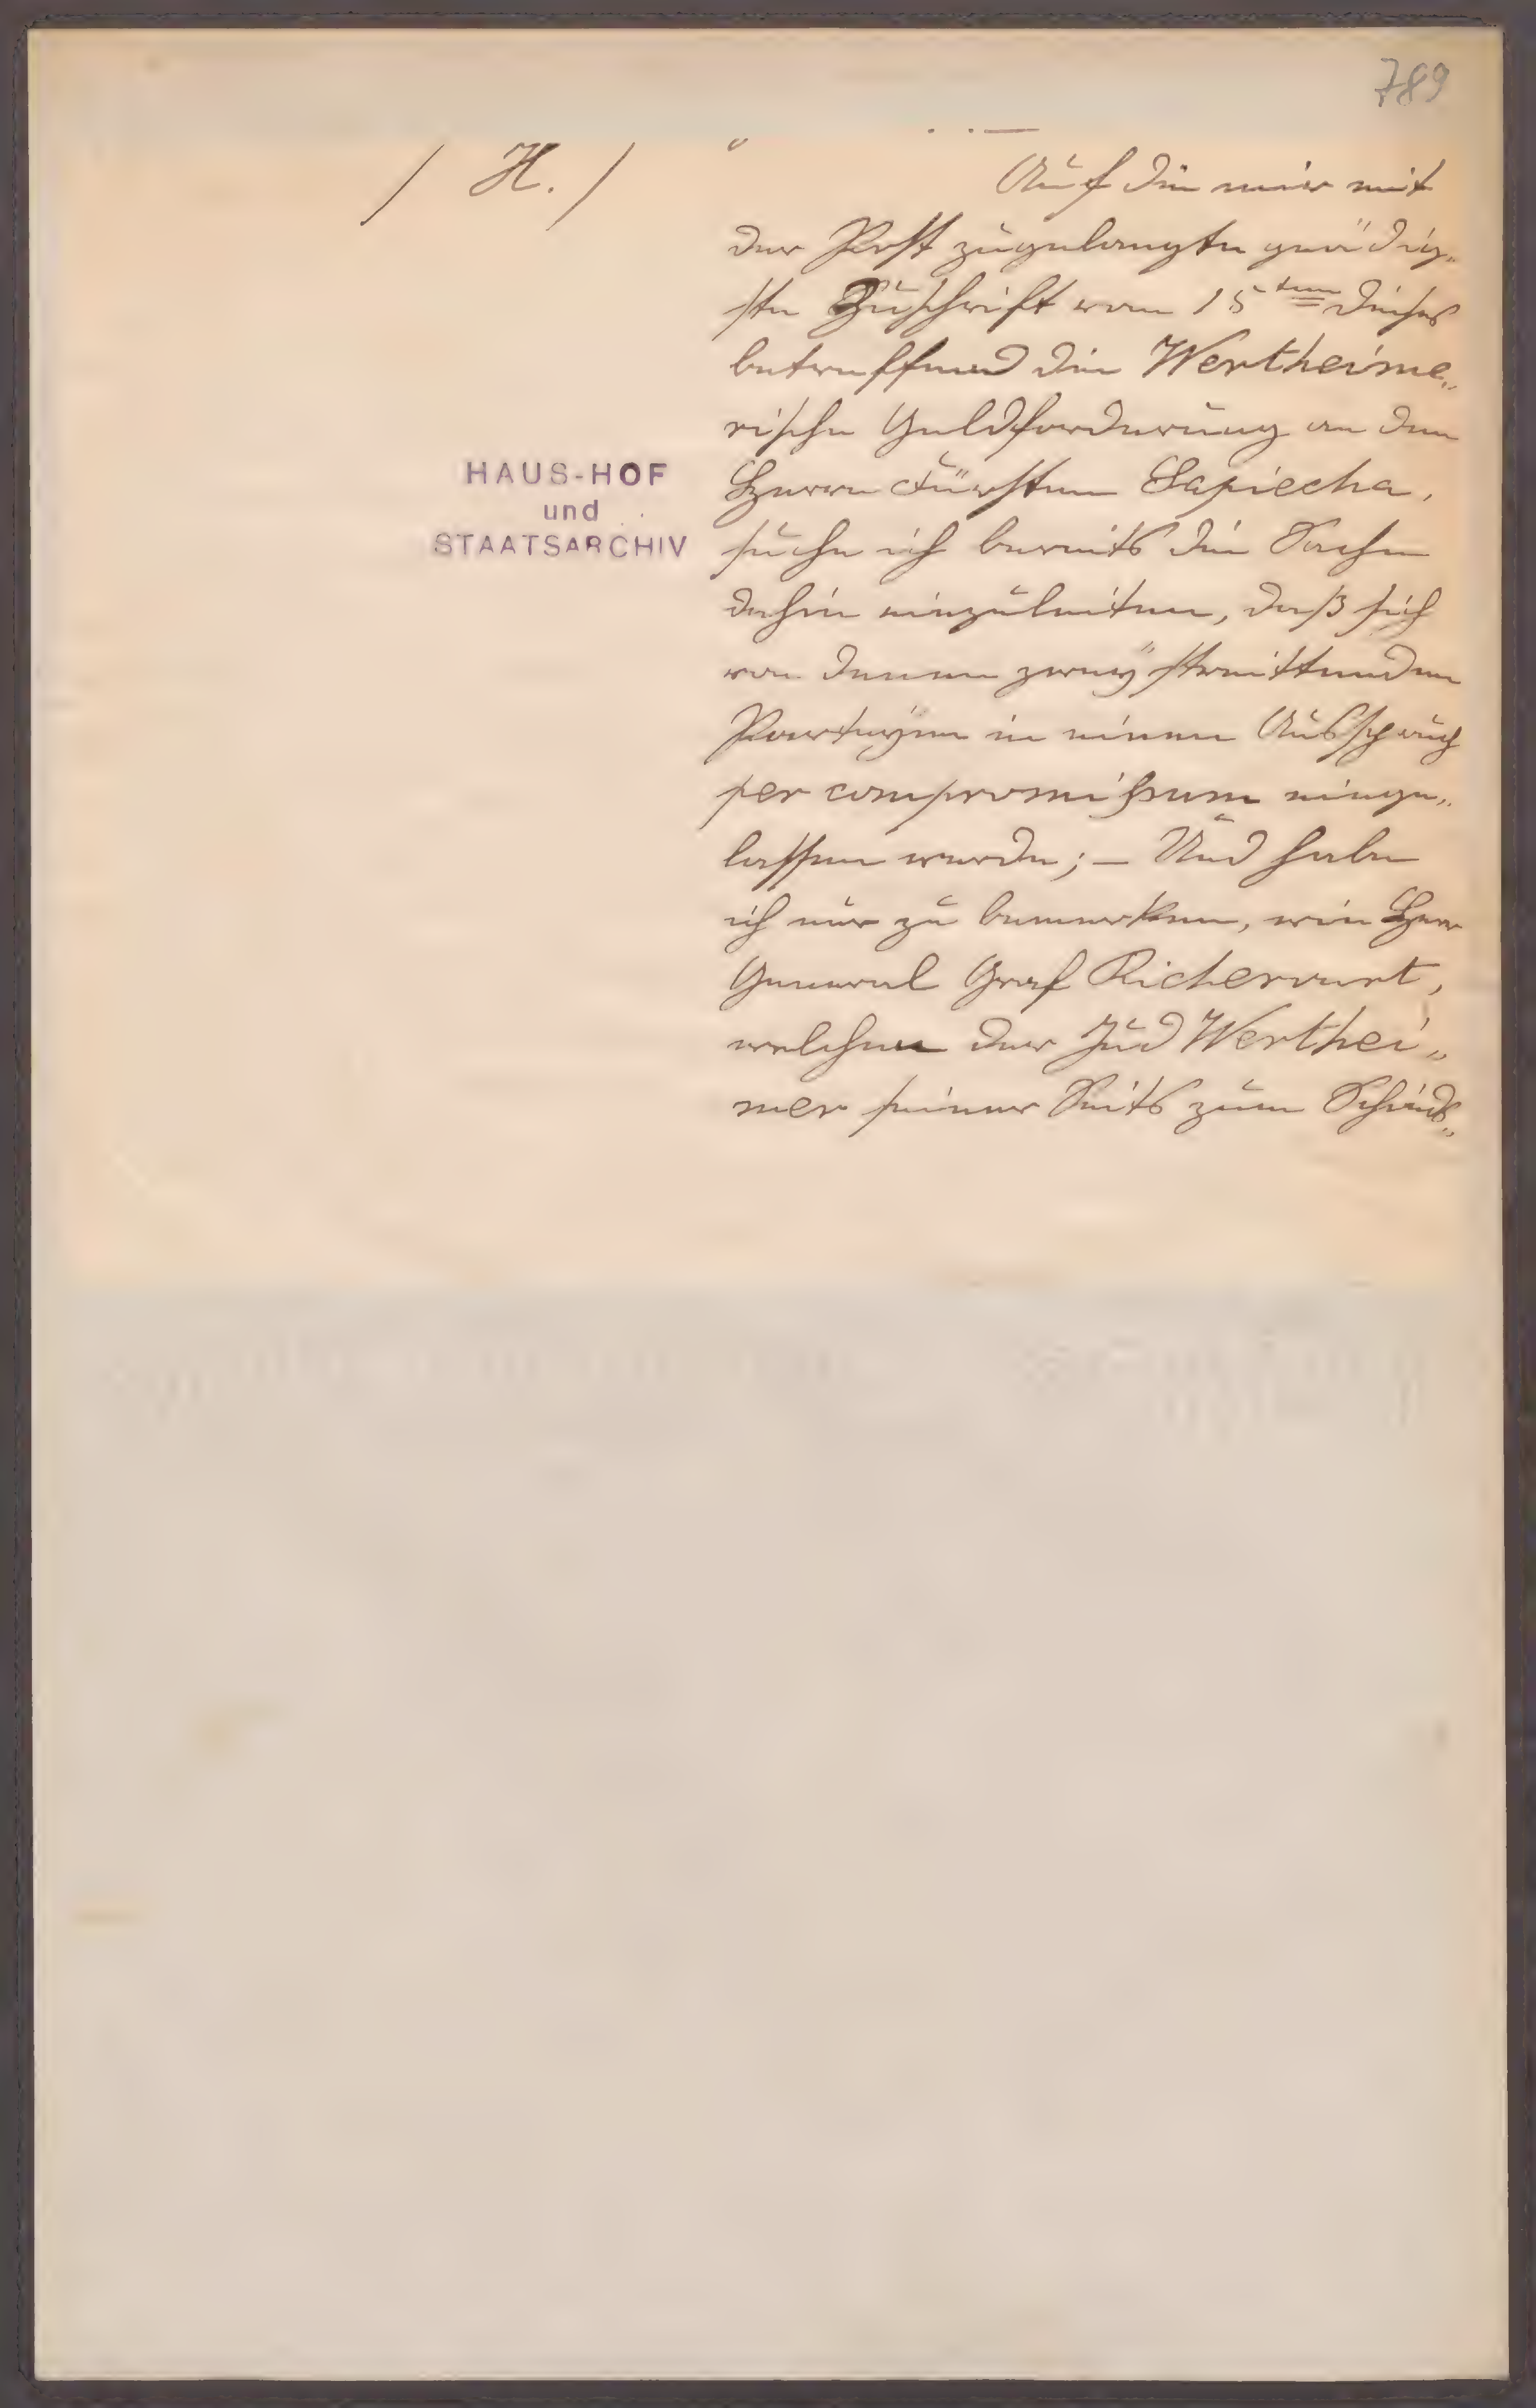 789
/ H. /
Auf die mir mit
der Post zugelangte gnädig„
ste Zuschrift vom 15ten dieses
betreffend die Wertheime„
rische Geldforderung an den
Herrn Fürsten Sapiecha,
HAUS-HOF
und
STAATSARCHIV
suche ich bereits die Sachen
dahin einzuleiten, daß sich
von denen zweÿ streittenden
Partheÿen in einen Ausspruch
per compromißum einge„
lassen werde; – Und habe
ich nur zu bemerken, wie Herr
General Graf Richecourt,
welchen der Jud Werthei„
mer seiner Seits zum Schieds„